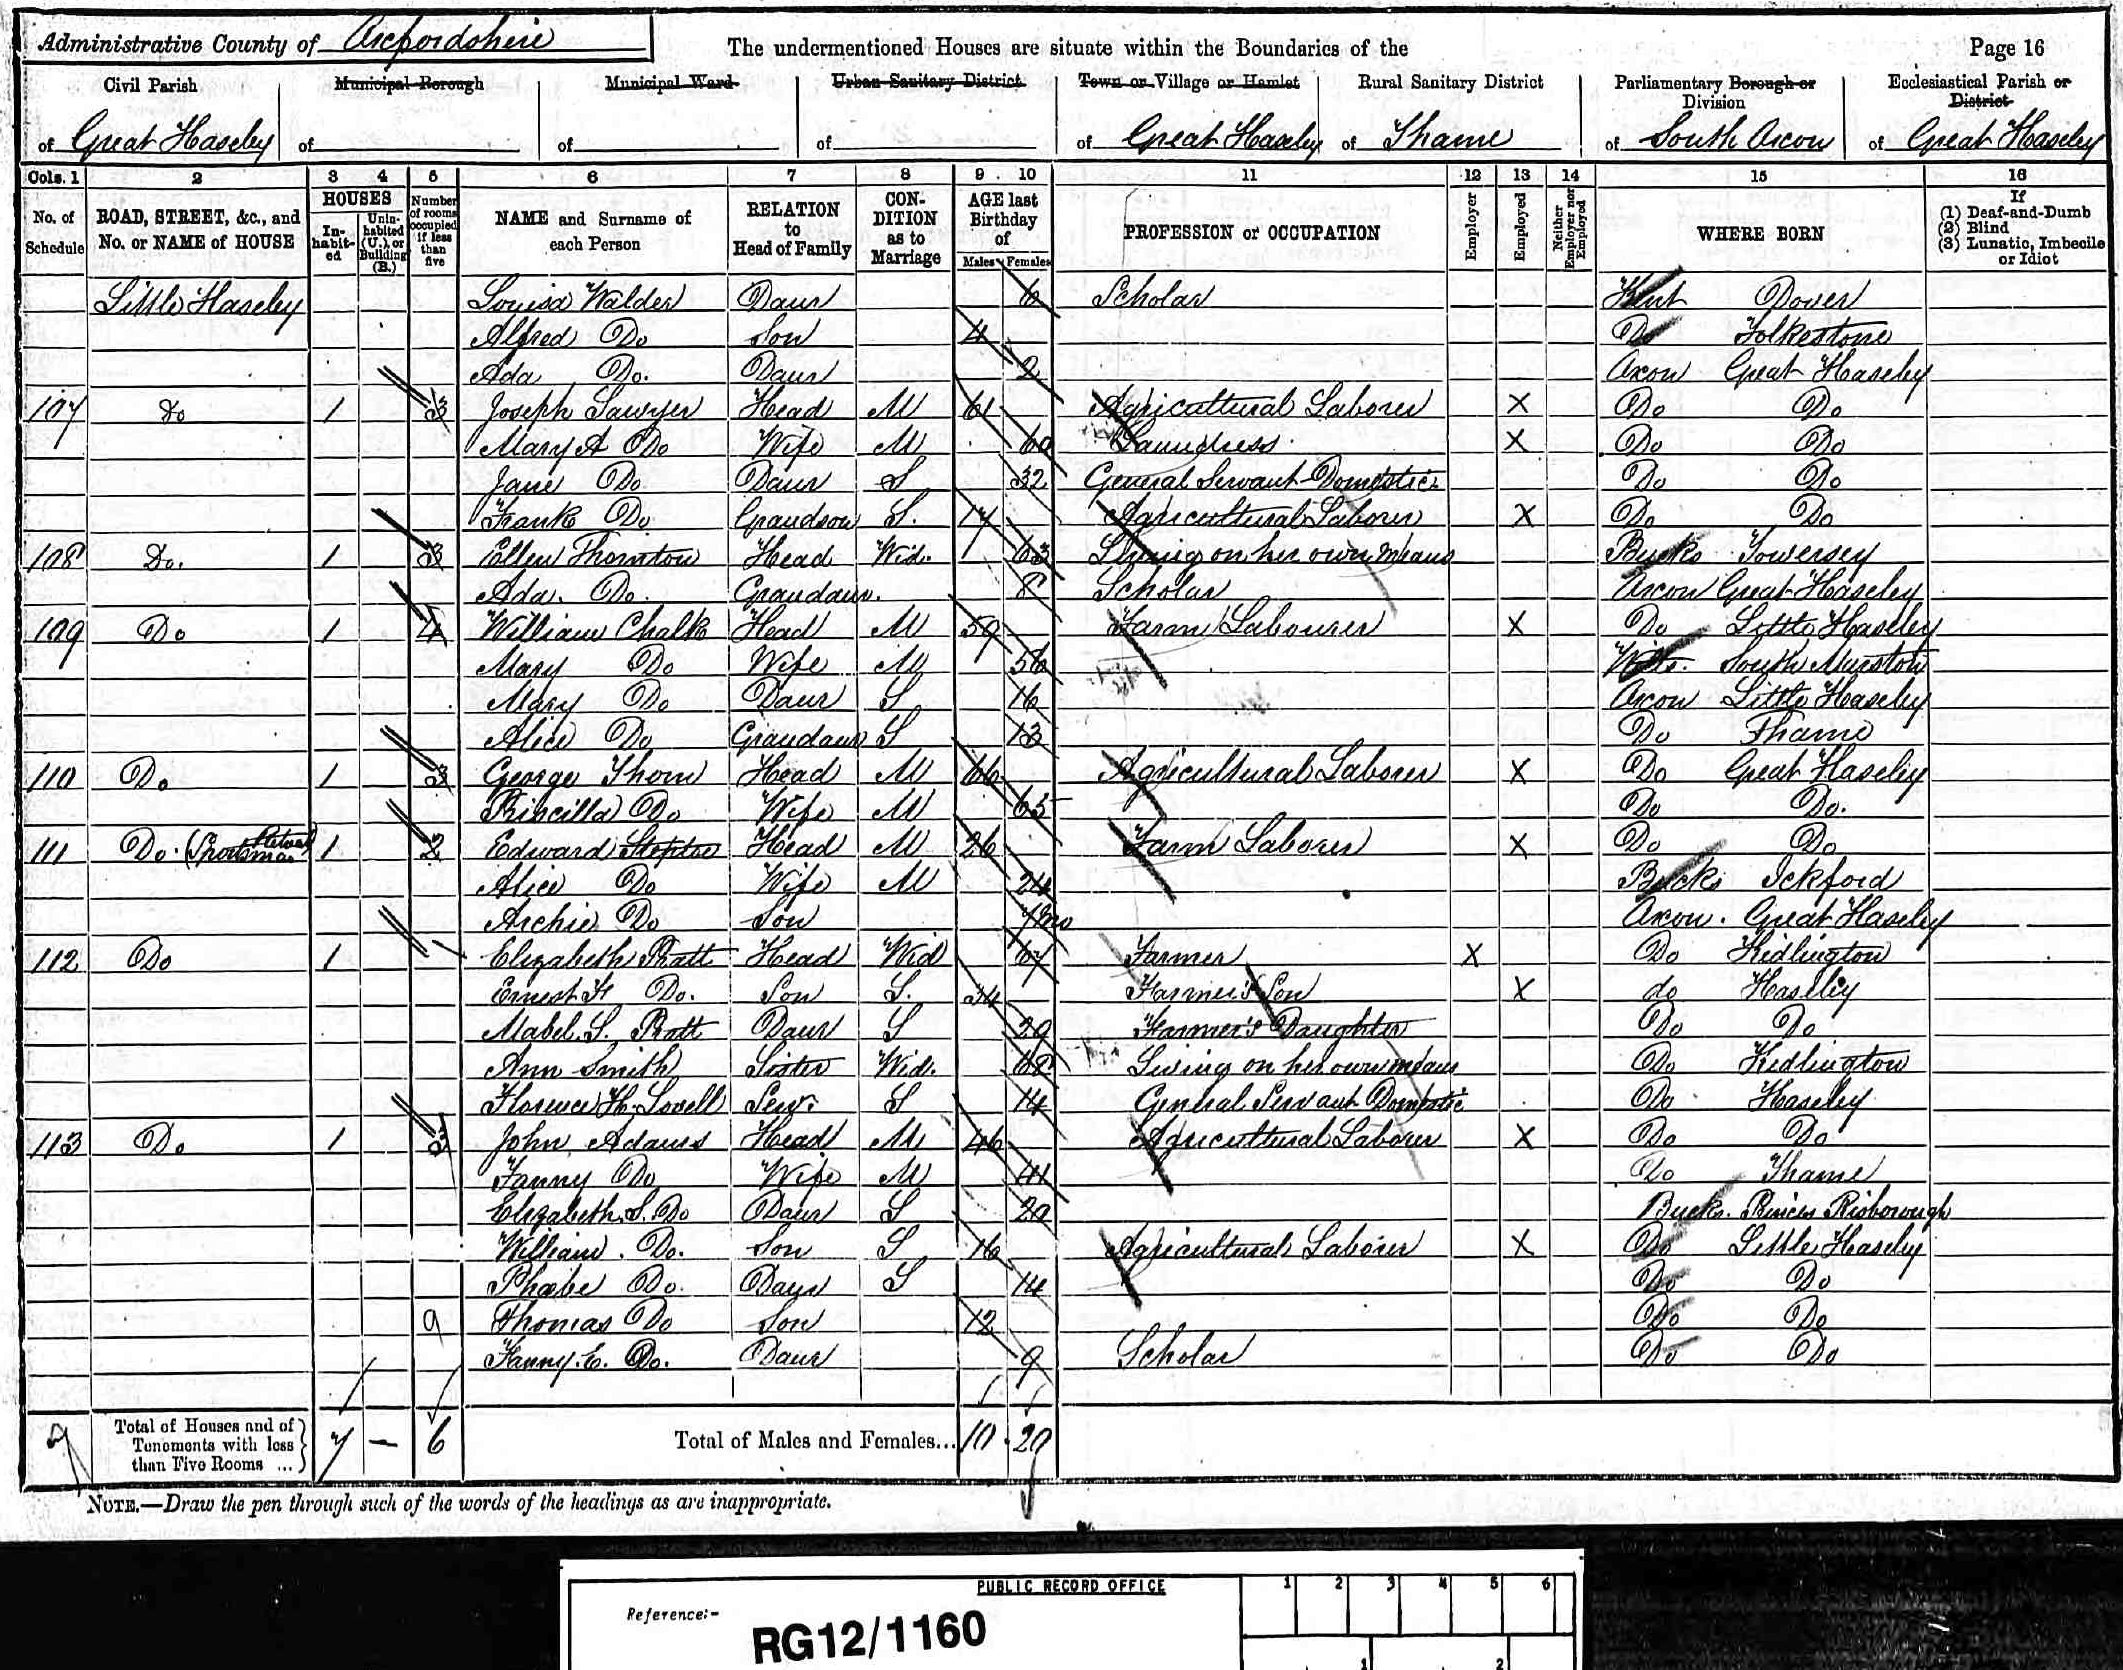 Administrative County of Oxfordshire The undermentioned Houses are situate within the Boundaries of the Page 16
Civil Parish Municipal Borough Municipal Ward Urban Sanitary District Town or Village or Hamlet Rural Sanitary District Parliamentary Borough or Division Ecclesiastical Parish or District
of Great Haseley of of of of Great Haseley of Thame of South Oxon of Great Haseley
Cols. 1 2 3 4 5 6 7 8 9 10 11 12 13 14 15 16
No. of Schedule ROAD, STREET, &c., and No. or NAME of HOUSE HOUSES In-habit-ed Unin-habited (U.), or Building (B.) Number of rooms occupied if less than five NAME and Surname of each Person RELATION to Head of Family CON-DITION as to Marriage AGE last Birthday of Males Females PROFESSION or OCCUPATION Employer Employed Neither Employer nor Employed WHERE BORN If (1) Deaf-and-Dumb (2) Blind (3) Lunatic, Imbecile or Idiot
Little Haseley Louisa Walder Daur 6 Scholar Kent Dover
Alfred Do Son 4 Do Folkestone
Ada Do. Daur 2 Oxon Great Haseley
107 Do 1 3 Joseph Sawyer Head M 61 Agricultural Laborer X Do Do
Mary A Do Wife M 60 Laundress X Do Do
Jane Do Daur S 32 General Servant Domestic Do Do
Frank Do Grandson S. 17 Agricultural Laborer X Do Do
108 Do. 1 3 Ellen Thornton Head Wid. 63 Living on her own Means Bucks Towersey
Ada. Do. Grandaur. 8 Scholar Oxon Great Haseley
109 Do 1 4 William Chalk Head M 59 Farm Labourer X Do Little Haseley
Mary Do Wife M 56 Wilts. South Marston
Mary Do Daur S 16 Oxon Little Haseley
Alice Do Grandaur S 13 Do Thame
110 Do 1 3 George Thom Head M 66 Agricultural Laborer X Do Great Haseley
Priscilla Do Wife M 65 Do Do.
111 Do. (Sportsman 1 2 Edward Head M 26 Farm Laborer X Do Do
Alice Do Wife M 24 Bucks Ickford
Archie Do Son 7mo Oxon. Great Haseley
112 Do 1 Elizabeth Pratt Head Wid 67 Farmer X Do Kidlington
Ernest F Do. Son S. 34 Farmer's Son X do Haseley
Mabel S. Pratt Daur S 20 Farmer's Daughter Do Do
Ann Smith Sister Wid. 68 Living on her own means Do Kidlington
Florence H. Lovell Serv. S 14 General Servant Domestic Do Haseley
113 Do 1 3 John Adams Head M 46 Agricultural Laborer X Do Do
Fanny Do Wife M 41 Do Thame
Elizabeth S. Do Daur S 20 Bucks. Princes Risborough
William. Do. Son S 16 Agricultural Laborer X Do Little Haseley
Phœbe Do. Daur S 14 Do Do
9 Thomas Do Son 12 Do Do
Fanny. E. Do. Daur 9 Scholar Do Do
Total of Houses and of Tenements with less than Five Rooms ... 7 — 6 Total of Males and Females... 10 20
NOTE.—Draw the pen through such of the words of the headings as are inappropriate.
PUBLIC RECORD OFFICE 1 2 3 4 5 6
Reference:-
RG12/1160
1 2